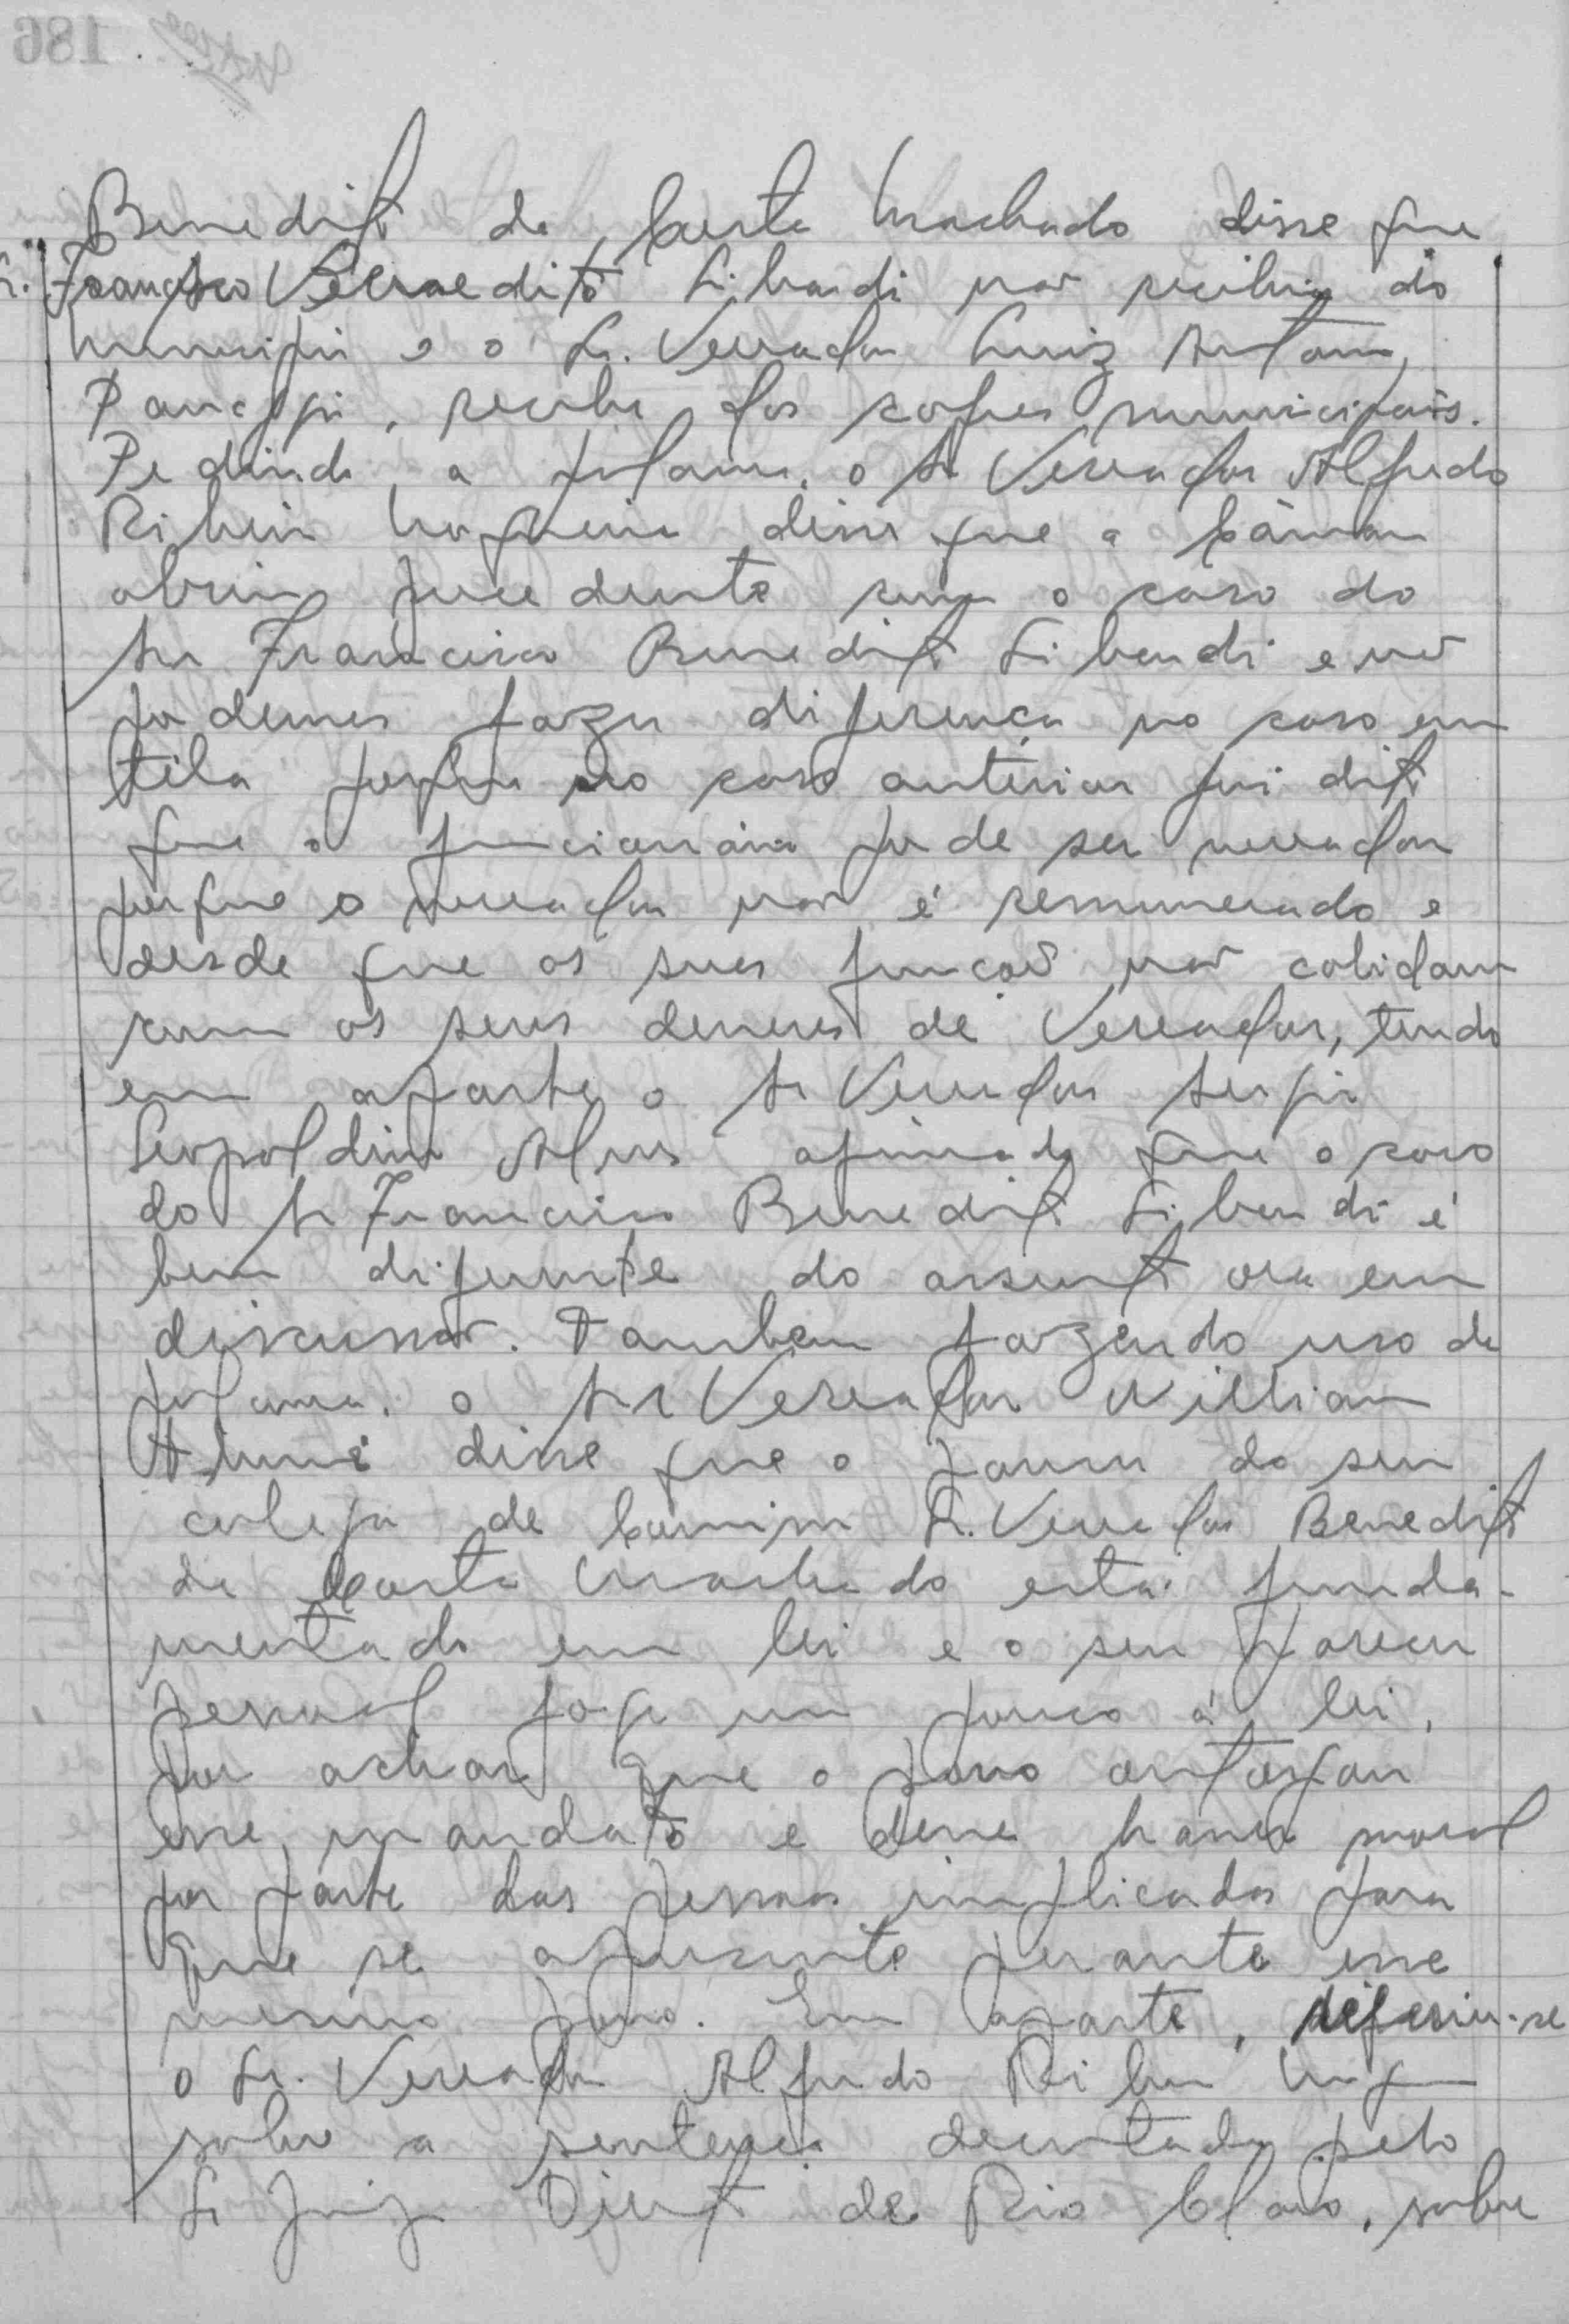 Benedito da Costa Machado disse que
Sr. Francisco Benedito Libardi não recebia do
municipio e o Sr. Vereador Luiz Antonio
, recebe dos cofres municipais.
Pedindo a palavra, o Sr Vereador Alfredo
Ribeiro Nogueira disse que a Câmara
abriu precedente com o caso do
Sr Francisco Benedito Libardi e não
podemos fazer diferença no caso em
téla porque no caso anterior foi dito
que o funcionário pode ser vereador
porque o vereador não é remunerado e
desde que as suas funções não colidam
com os seus deveres de Vereador, tendo
em aparte o Sr Vereador Sergio
Leopoldino Alves afirmado que o caso
do Sr Francisco Benedito Libardi é
bem diferente do assunto ora em
discussão. Tambem fazendo uso da
palavra, o Sr Vereador William
disse que o parecer do seu
colega de Comissão Sr. Vereador Benedito
da Costa Machado está funda-
mentado em lei e o seu parecer
pessoal foge um pouco à lei,
por achar que o povo outorgou
esse mandato e deve haver moral
por parte das pessoas implicadas para
que se apresente perante esse
mesmo povo. Em aparte, referiu-se
o Sr. Vereador Alfredo Ribeiro Nogueira
sobre a sentença decretada pelo
Sr Juiz Direito de Rio Claro, sobre
186